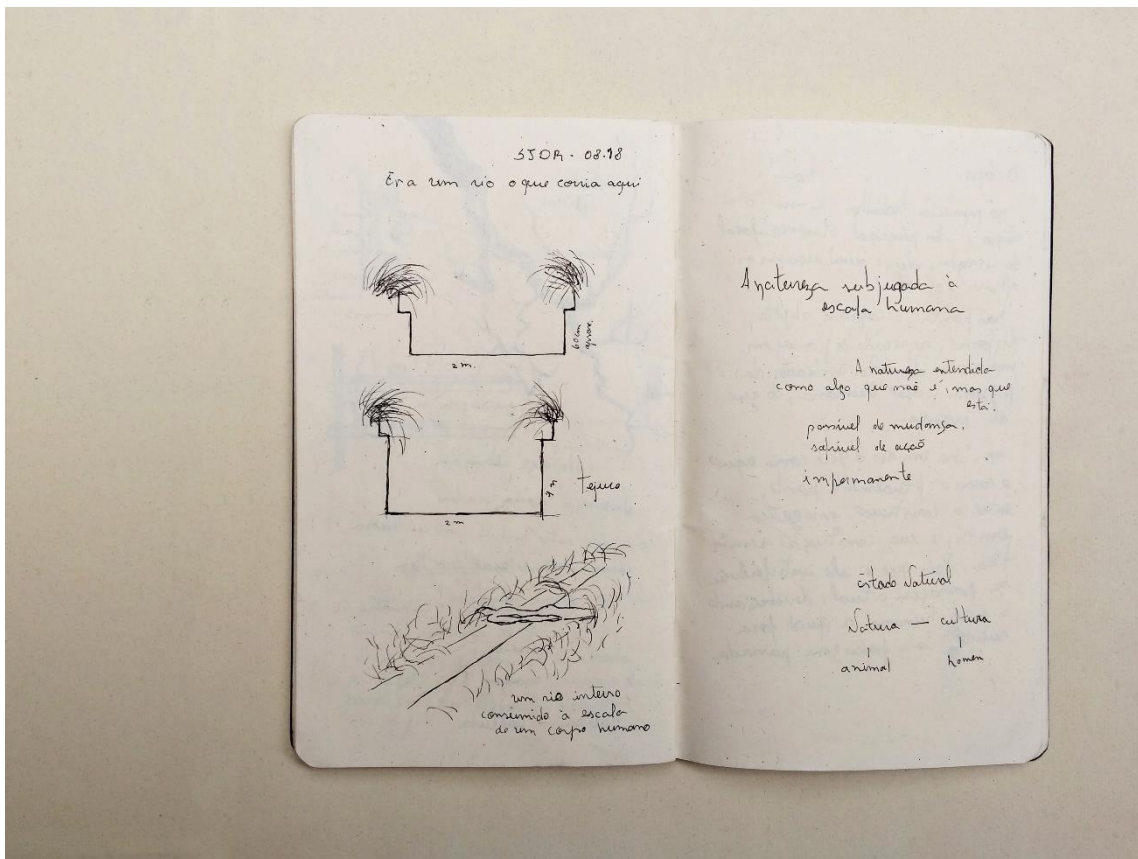 SJDR - 08.18
Era um rio o que corria aqui
2 m.
60 cm
aprox.
2 m
Tejuco
um rio inteiro
consumido à escala
de um corpo humano
A natureza subjugada à
escala humana
A natureza entendida
como algo que não é, mas que
está.
passível de mudança.
de ação
impermanente
estado Natural
Natura — cultura
animal
homem